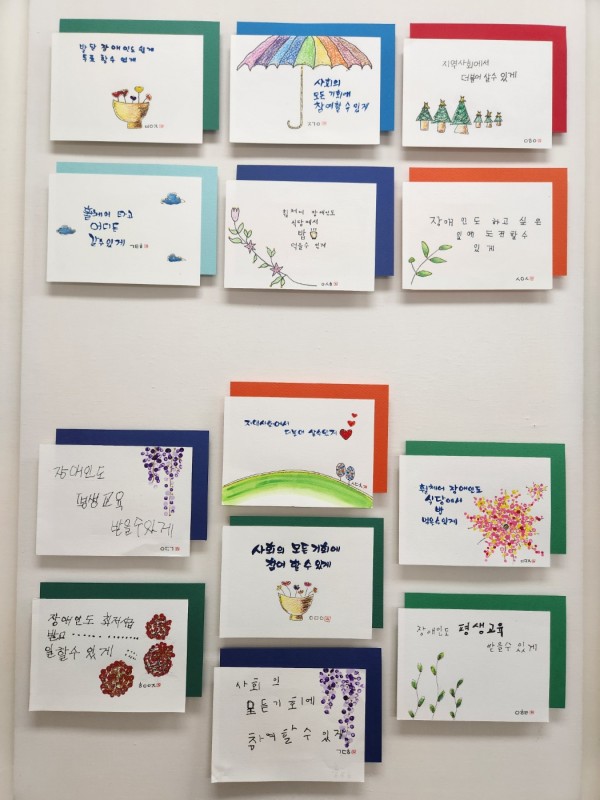 발달 장애인도 쉽게
투표 할수 있게
사회의
모든 기회에
참여할 수 있게
지역사회에서
더불어 살수 있게
휠체어 타고
어디든
갈수있게
휠체어 장애인도
식당에서
밥
먹을수 있게
장애인도 하고 싶은
일에 도전할수
있게
지역사회에서
더불어 살수있게
장애인도
평생교육
받을수있게
휠체어 장애인도
식당에서
밥
먹을수있게
사회의 모든 기회에
참여 할 수 있게
장애인도 최저임금
받고
일할수 있게
장애인도 평생교육
받을수 있게
사회의
모든기회에
참여할수 있게